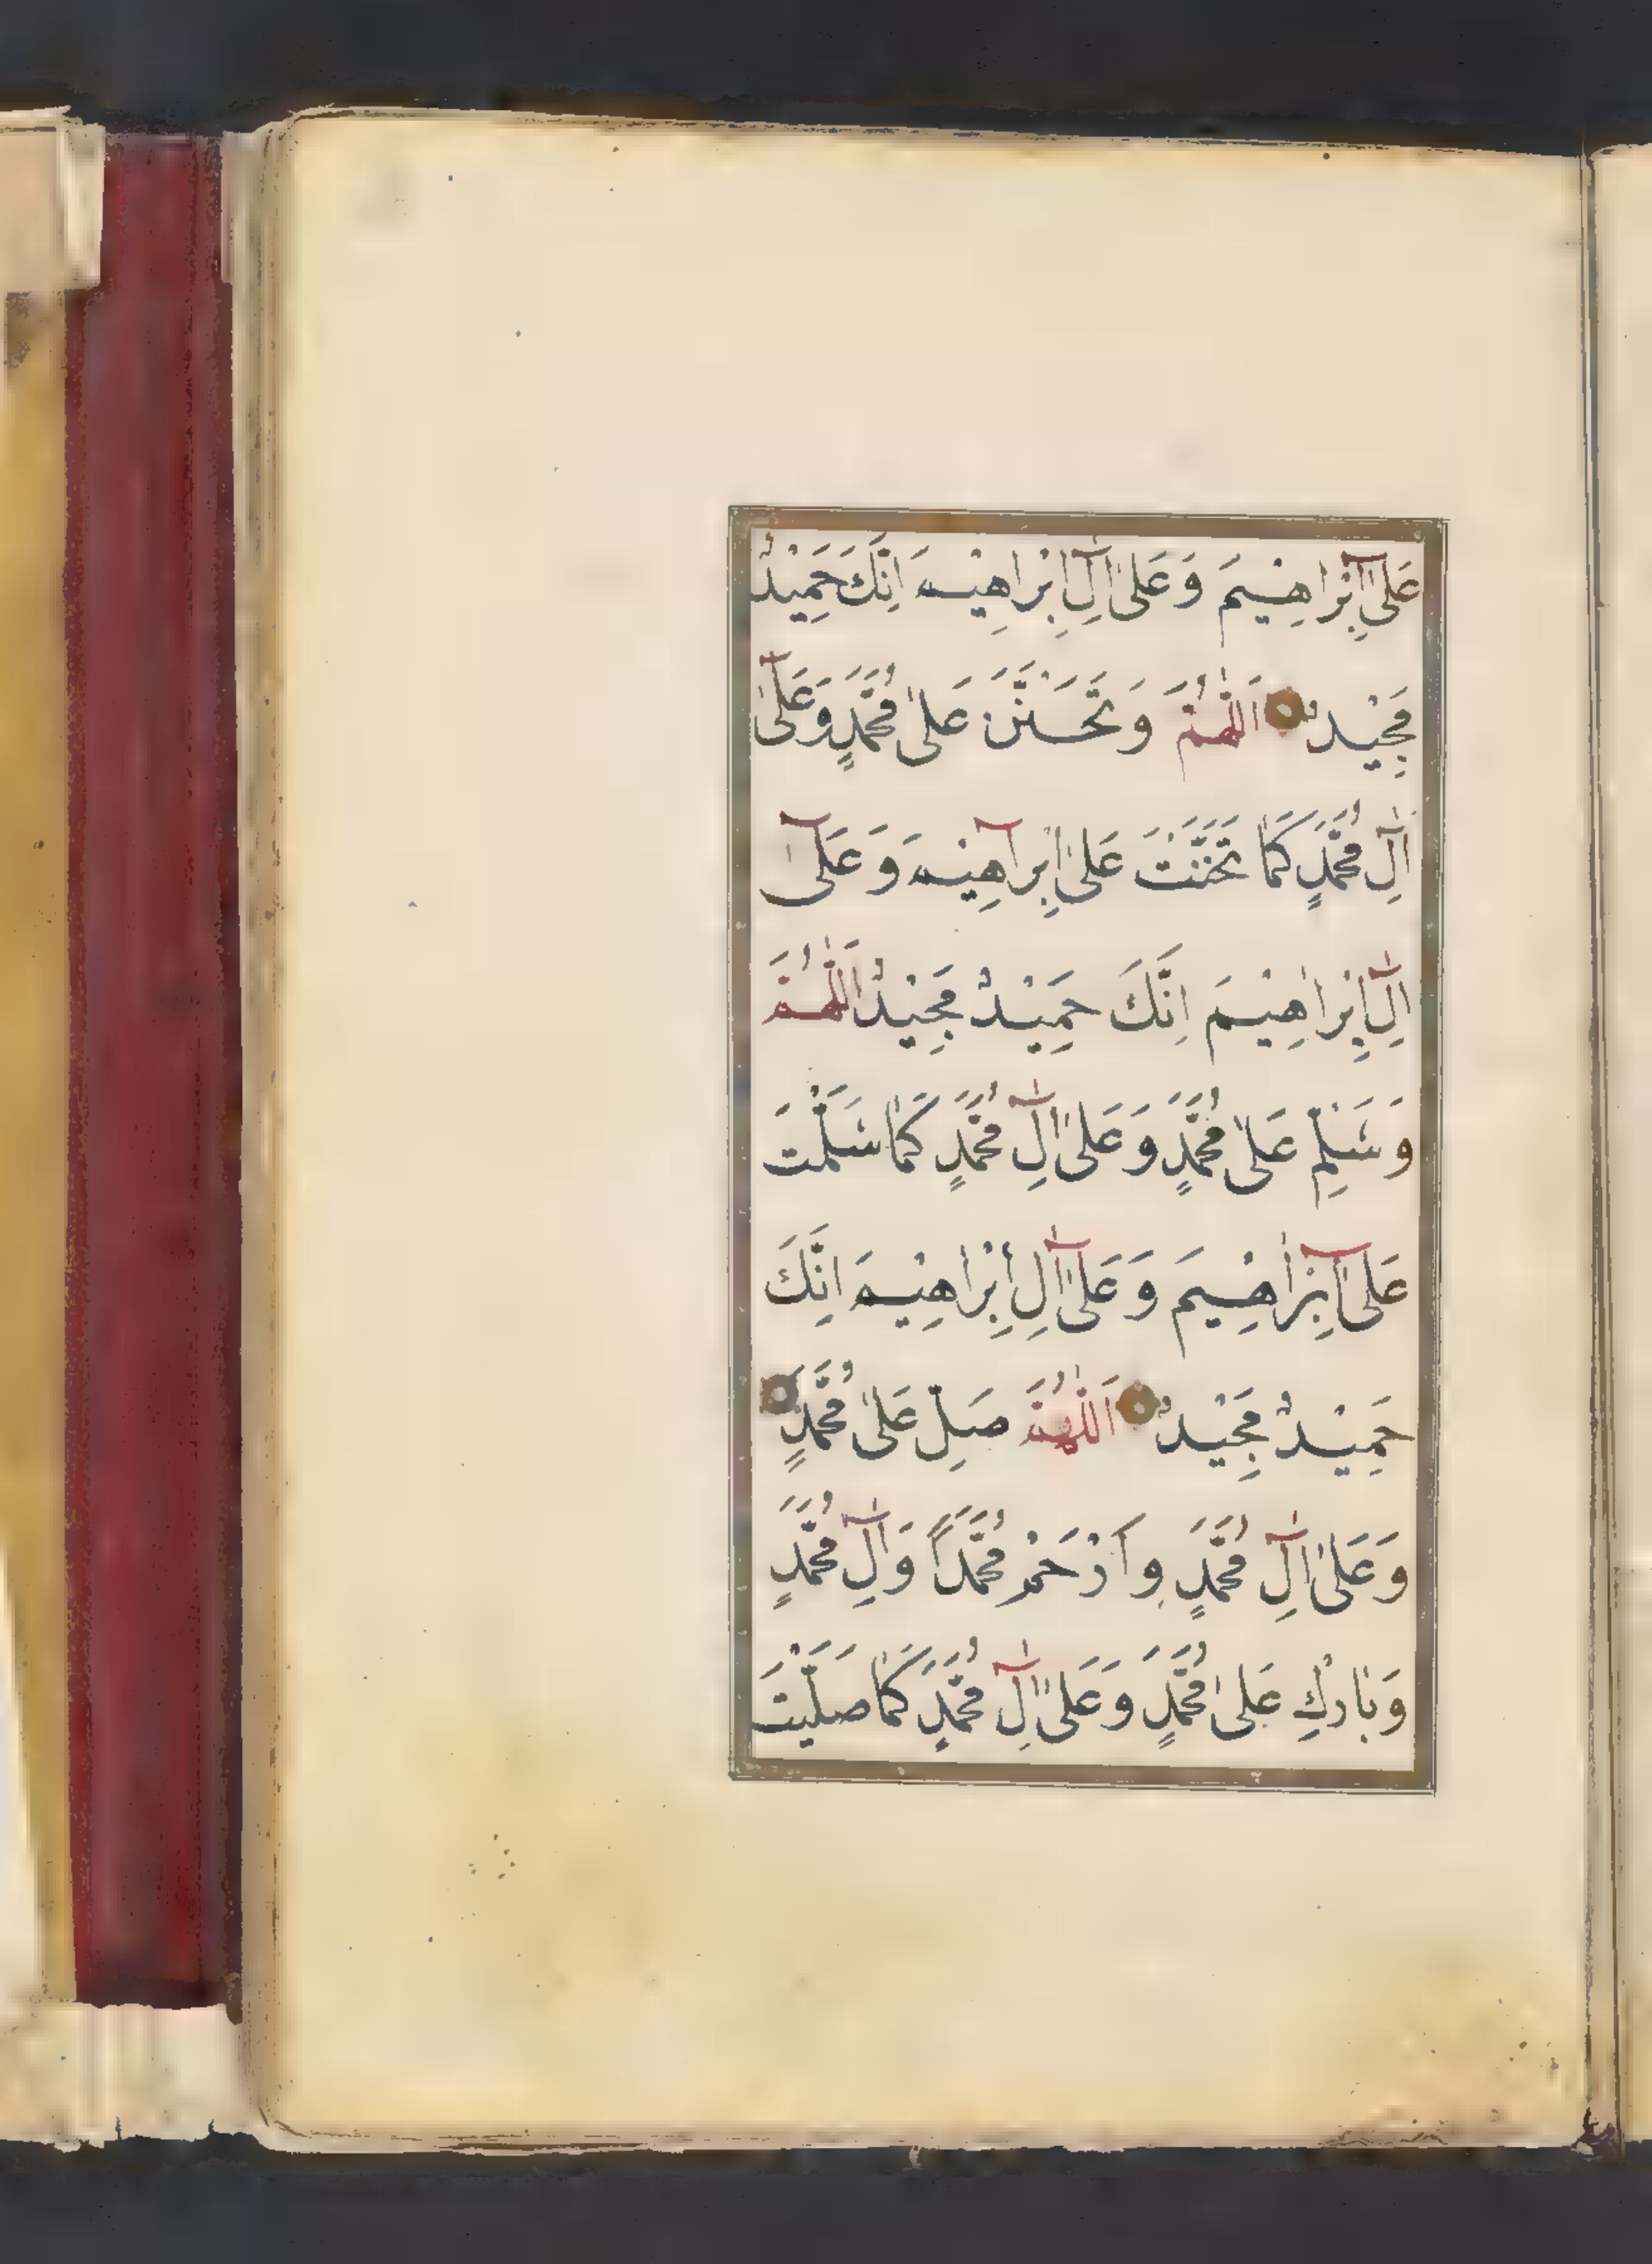 عَلَىٰٓ اِبْرَاهِيْمَ وَعَلَىٰٓ اٰلِ اِبْرَاهِيْمَ اِنَّكَ حَمِيْدٌ
مَجِيْدٌ اَللّٰهُمَّ وَتَحَنَّنْ عَلىٰ مُحَمَّدٍ وَعَلىٰٓ
اٰلِ مُحَمَّدٍ كَمَا تَحَنَّنْتَ عَلىٰٓ اِبْرَاهِيْمَ وَعَلىٰٓ
اٰلِ اِبْرَاهِيْمَ اِنَّكَ حَمِيْدٌ مَجِيْدٌ اَللّٰهُمَّ
وَسَلِّمْ عَلىٰ مُحَمَّدٍ وَعَلىٰٓ اٰلِ مُحَمَّدٍ كَمَا سَلَّمْتَ
عَلىٰٓ اِبْرَاهِيْمَ وَعَلىٰٓ اٰلِ اِبْرَاهِيْمَ اِنَّكَ
حَمِيْدٌ مَجِيْدٌ اَللّٰهُمَّ صَلِّ عَلىٰ مُحَمَّدٍ
وَعَلىٰٓ اٰلِ مُحَمَّدٍ وَارْحَمْ مُحَمَّدًا وَاٰلِ مُحَمَّدٍ
وَبَارِكْ عَلىٰ مُحَمَّدٍ وَعَلىٰٓ اٰلِ مُحَمَّدٍ كَمَا صَلَّيْتَ